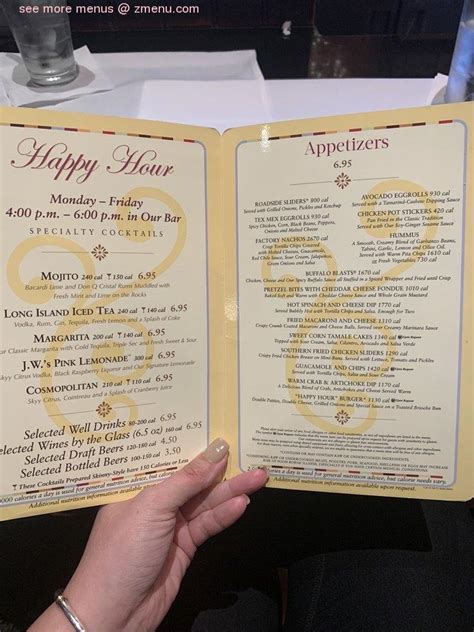 see more menus @ zmenu.com
Happy Hour
Monday – Friday
4:00 p.m. – 6:00 p.m. in Our Bar
SPECIALTY COCKTAILS
MOJITO 240 cal 130 cal 6.95
Bacardi Lime and Don Q Cristal Rums Muddled with
Fresh Mint and Lime on the Rocks
LONG ISLAND ICED TEA 240 cal 140 cal 6.95
Vodka, Rum, Gin, Tequila, Fresh Lemon and a Splash of Coke
MARGARITA 200 cal 150 cal 6.95
Classic Margarita with Gold Tequila, Triple Sec and Fresh Sweet & Sour
J.W.'S PINK LEMONADE 300 cal 6.95
Skyy Citrus Vodka, Black Raspberry Liqueur and Our Signature Lemonade
COSMOPOLITAN 210 cal 110 cal 6.95
Skyy Citrus, Cointreau and a Splash of Cranberry Juice
Selected Well Drinks 80-200 cal 6.95
Selected Wines by the Glass (6.5 oz) 160 cal 6.95
Selected Draft Beers 120-180 cal 4.50
Selected Bottled Beers 100-150 cal 3.50
These Cocktails Prepared Skinny-Style have 150 Calories or Less
calories a day is used for general nutrition advice, but calorie
Additional nutrition information
Appetizers
6.95
ROADSIDE SLIDERS® 800 cal
Served with Grilled Onions, Pickles and Ketchup
TEX MEX EGGROLLS 930 cal
Spicy Chicken, Corn, Black Beans, Peppers,
Onions and Melted Cheese
FACTORY NACHOS 2670 cal
Crisp Tortilla Chips Covered
with Melted Cheeses, Guacamole,
Red Chile Sauce, Sour Cream, Jalapeños,
Green Onions and Salsa
AVOCADO EGGROLLS 930 cal
Served with a Tamarind-Cashew Dipping Sauce
CHICKEN POT STICKERS 420 cal
Pan Fried in the Classic Tradition
Served with Our Soy-Ginger Sesame Sauce
HUMMUS
A Smooth, Creamy Blend of Garbanzo Beans,
Tahini, Garlic, Lemon and Olive Oil
Served with Warm Pita Chips 1610 cal
or Fresh Vegetables 730 cal
BUFFALO BLASTS® 1670 cal
Chicken, Cheese and Our Spicy Buffalo Sauce all Stuffed in a Spiced Wrapper and Fried until Crisp
PRETZEL BITES WITH CHEDDAR CHEESE FONDUE 1010 cal
Baked Soft and Warm with Cheddar Cheese Sauce and Whole Grain Mustard
HOT SPINACH AND CHEESE DIP 1770 cal
Served Bubbly Hot with Enough Tortilla Chips, Salsa and Sour Cream for Two
FRIED MACARONI AND CHEESE 1310 cal
Crispy Crumb Coated Macaroni and Cheese Balls. Served over Creamy Marinara Sauce
SWEET CORN TAMALE CAKES 1340 cal
Topped with Sour Cream, Salsa, Cilantro, Avocado and Salsa Verde
SOUTHERN FRIED CHICKEN SLIDERS 1290 cal
Crispy Fried Chicken Breast on Mini-Buns. Served with Lettuce, Tomato and Pickles
GUACAMOLE AND CHIPS 1420 cal
Served with Tortilla Chips, Salsa and Sour Cream
WARM CRAB & ARTICHOKE DIP 1170 cal
A Delicious Blend of Crab, Artichokes and Cheese Served Warm
"HAPPY HOUR" BURGER* 1130 cal
Double Patties, Double Cheese, Grilled Onions and Special Sauce on a Toasted Brioche Bun
calories a day is used for general nutrition advice, but calorie needs vary.
Additional nutrition information available upon request.